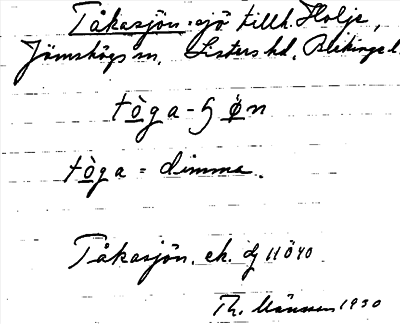 Tåkasjön. sjö tillh. Holje,
Jämshögs sn, Listers hd, Blekinge l.
tò̲g a - ɧ ø̲n
tò̲g a = dimma.
Tåkasjön. ek. dj 11 Ö 40
Th. Månsson 1930